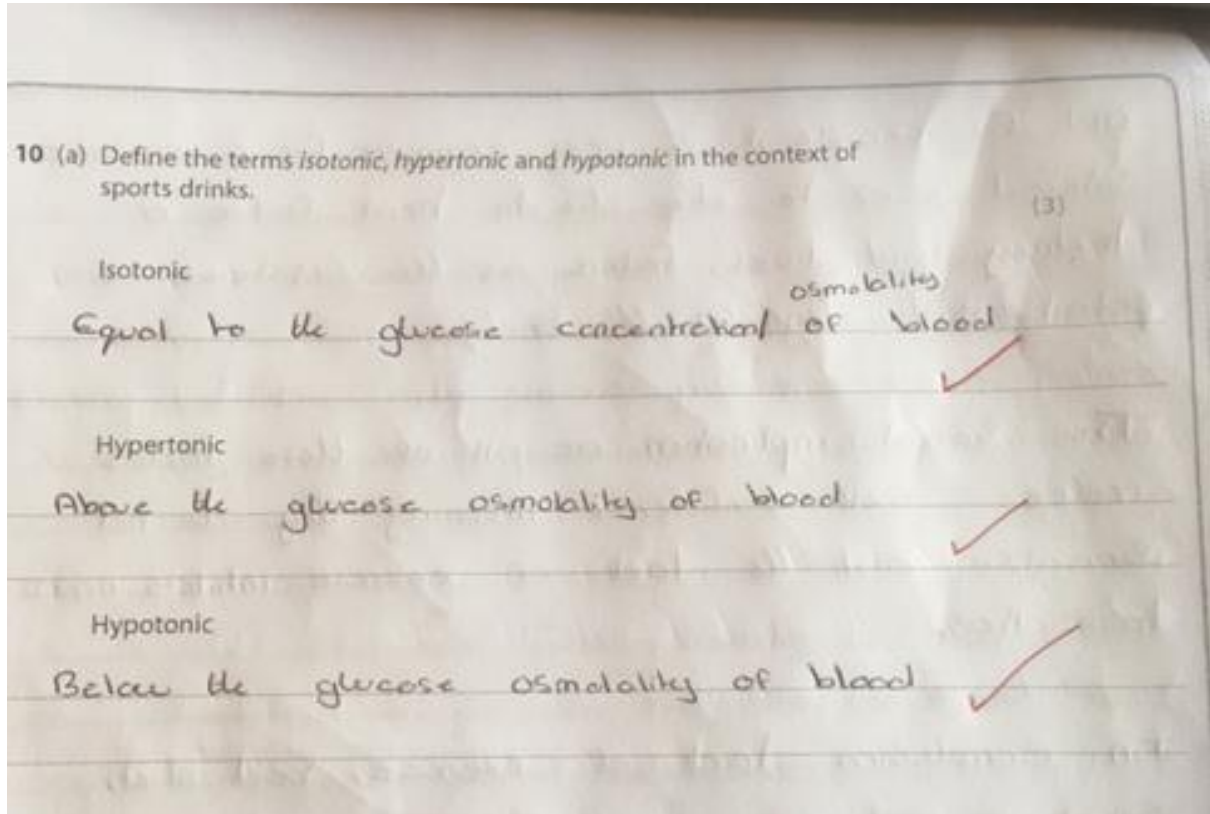 10 (a) Define the terms isotonic, hypertonic and hypotonic in the context of
sports drinks.
(3)
Isotonic
osmolality
Equal to the glucose concentration/ of blood
Hypertonic
Above the glucose osmolality of blood
Hypotonic
Below the glucose osmolality of blood